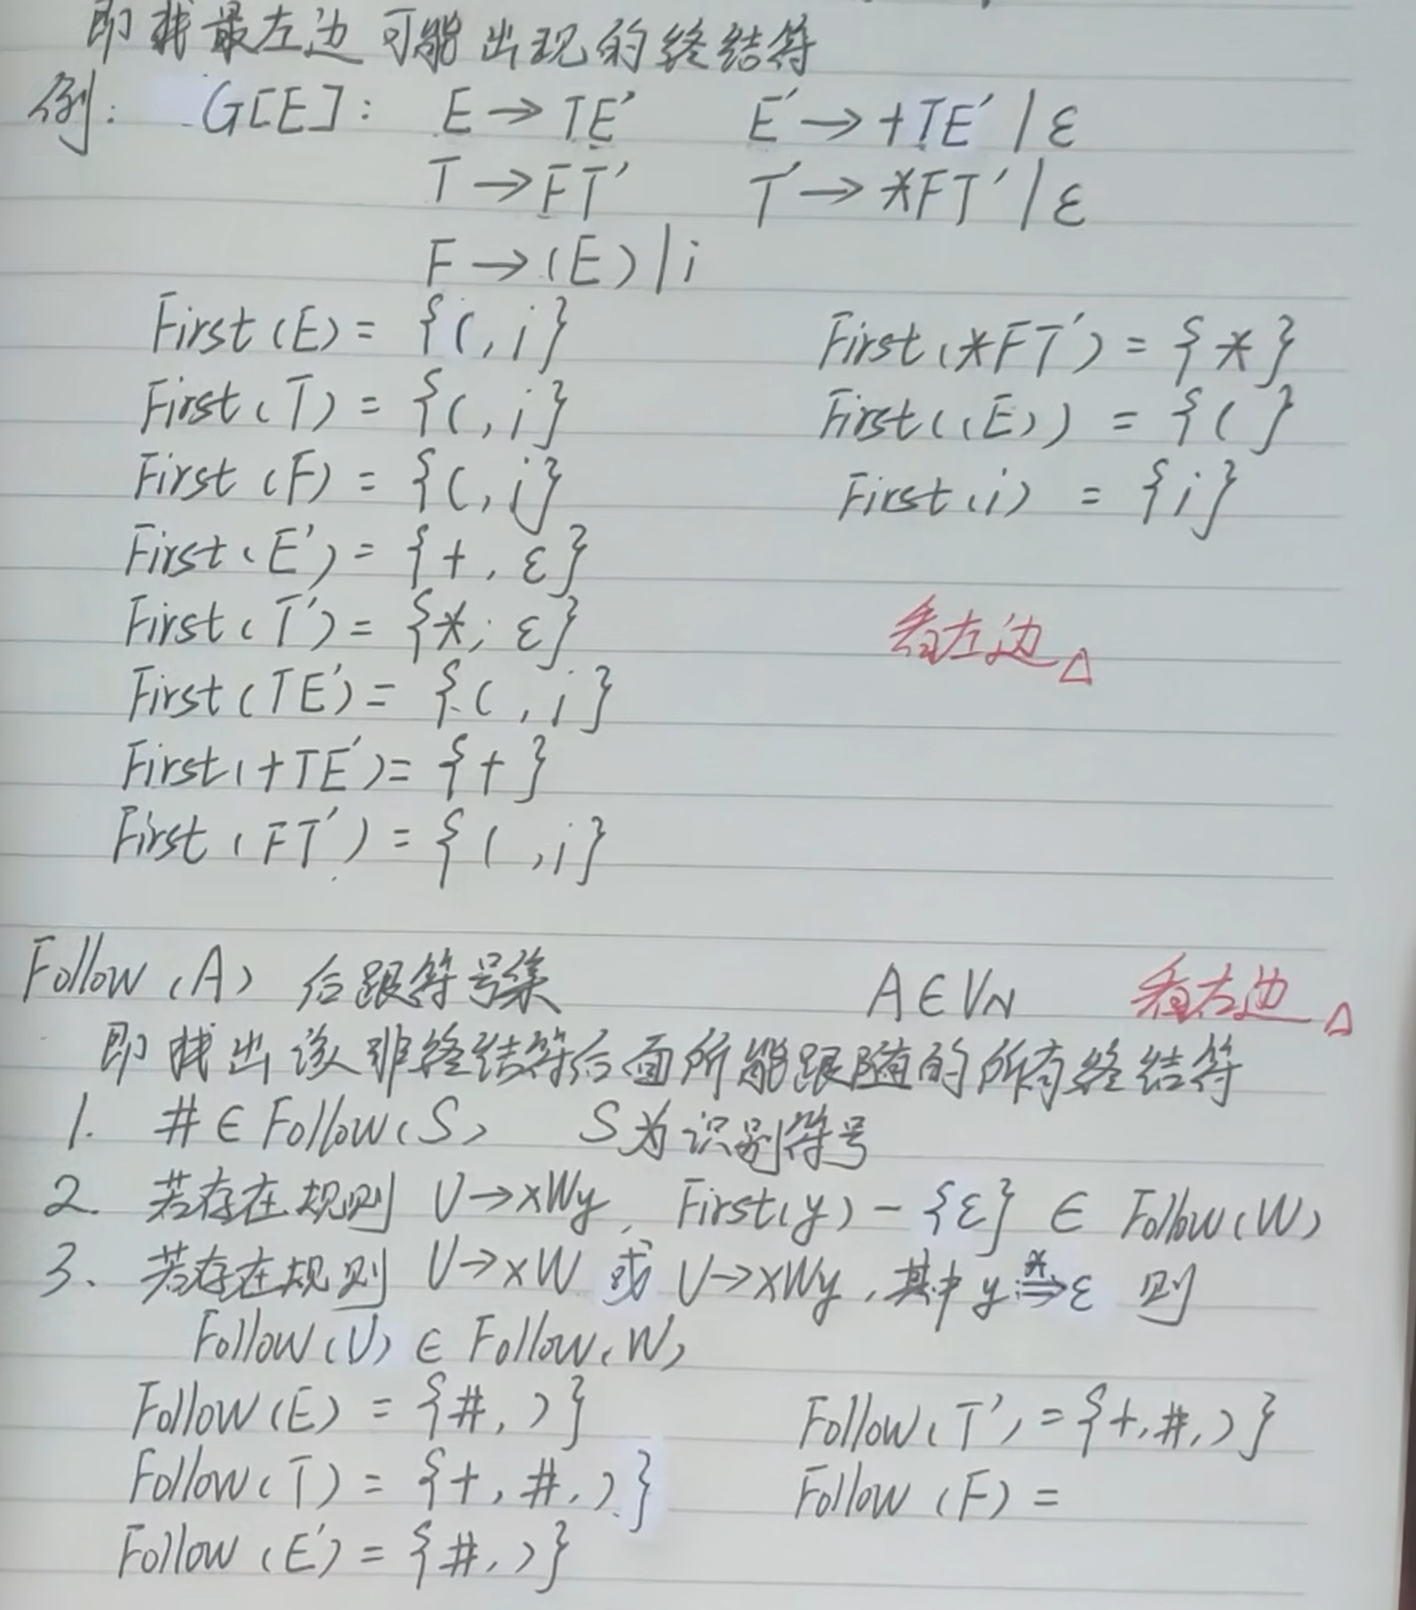 即找最左边可能出现的终结符
例: G[E]: E→TE' E'→+TE'|ε
T→FT' T'→*FT'|ε
F→(E)|i
First(E)={(,i} First(*FT')={*}
First(T)={(,i} First((E))={(}
First(F)={(,i} First(i)={i}
First(E')={+,ε}
First(T')={*,ε} 看左边△
First(TE')={(,i}
First(+TE')={+}
First(FT')={(,i}
Follow(A) 后跟符号集 A∈VN 看右边△
即找出该非终结符后面所能跟随的所有终结符
1. #∈Follow(S) S为识别符号
2. 若存在规则 U→xWy, First(y)-{ε}∈Follow(W)
3. 若存在规则 U→xW 或 U→xWy,其中y*⇒ε 则
Follow(U)∈Follow(W)
Follow(E)={#,)} Follow(T')={+,#,)}
Follow(T)={+,#,)} Follow(F)=
Follow(E')={#,)}